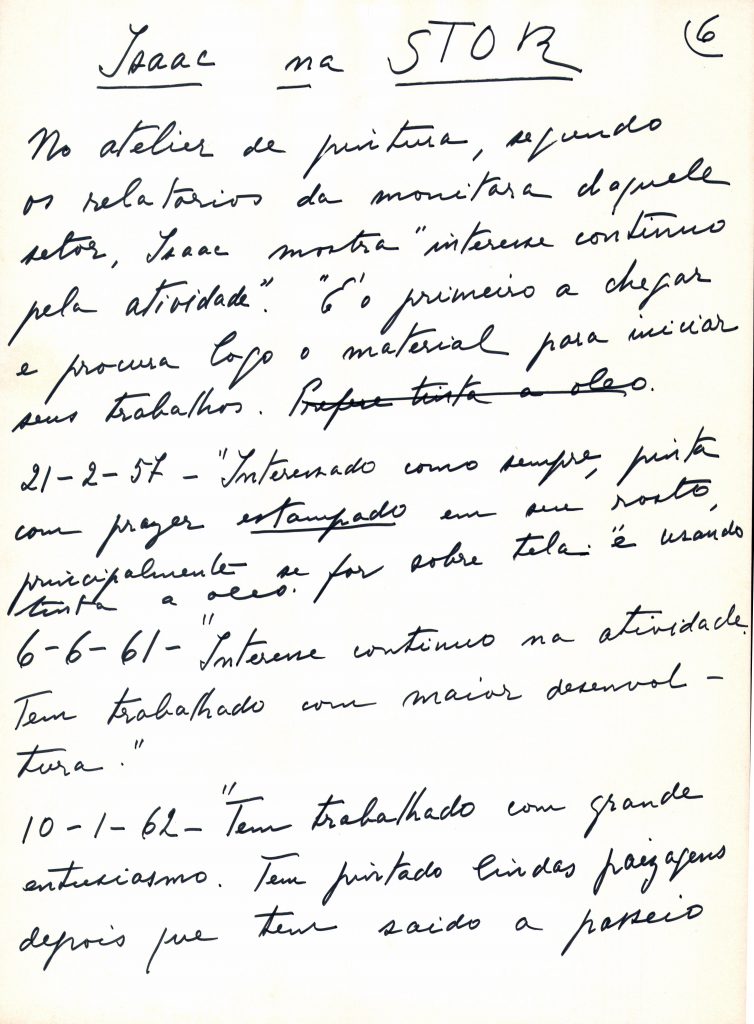 6
Isaac na STOR
No atelier de pintura, segundo
os relatorios da monitora daquele
setor, Isaac mostra "interesse continuo
pela atividade". "É o primeiro a chegar
e procura logo o material para iniciar
seus trabalhos. Prefere tinta a oleo.
21-2-57 - "Interessado como sempre, pinta
com prazer estampado em seu rosto,
principalmente se for sobre tela" e usando
tinta a oleo.
6-6-61 - "Interesse continuo na atividade.
Tem trabalhado com maior desenvol-
tura."
10-1-62 - "Tem trabalhado com grande
entusiasmo. Tem pintado lindas paizagens
depois que tem saido a passeio